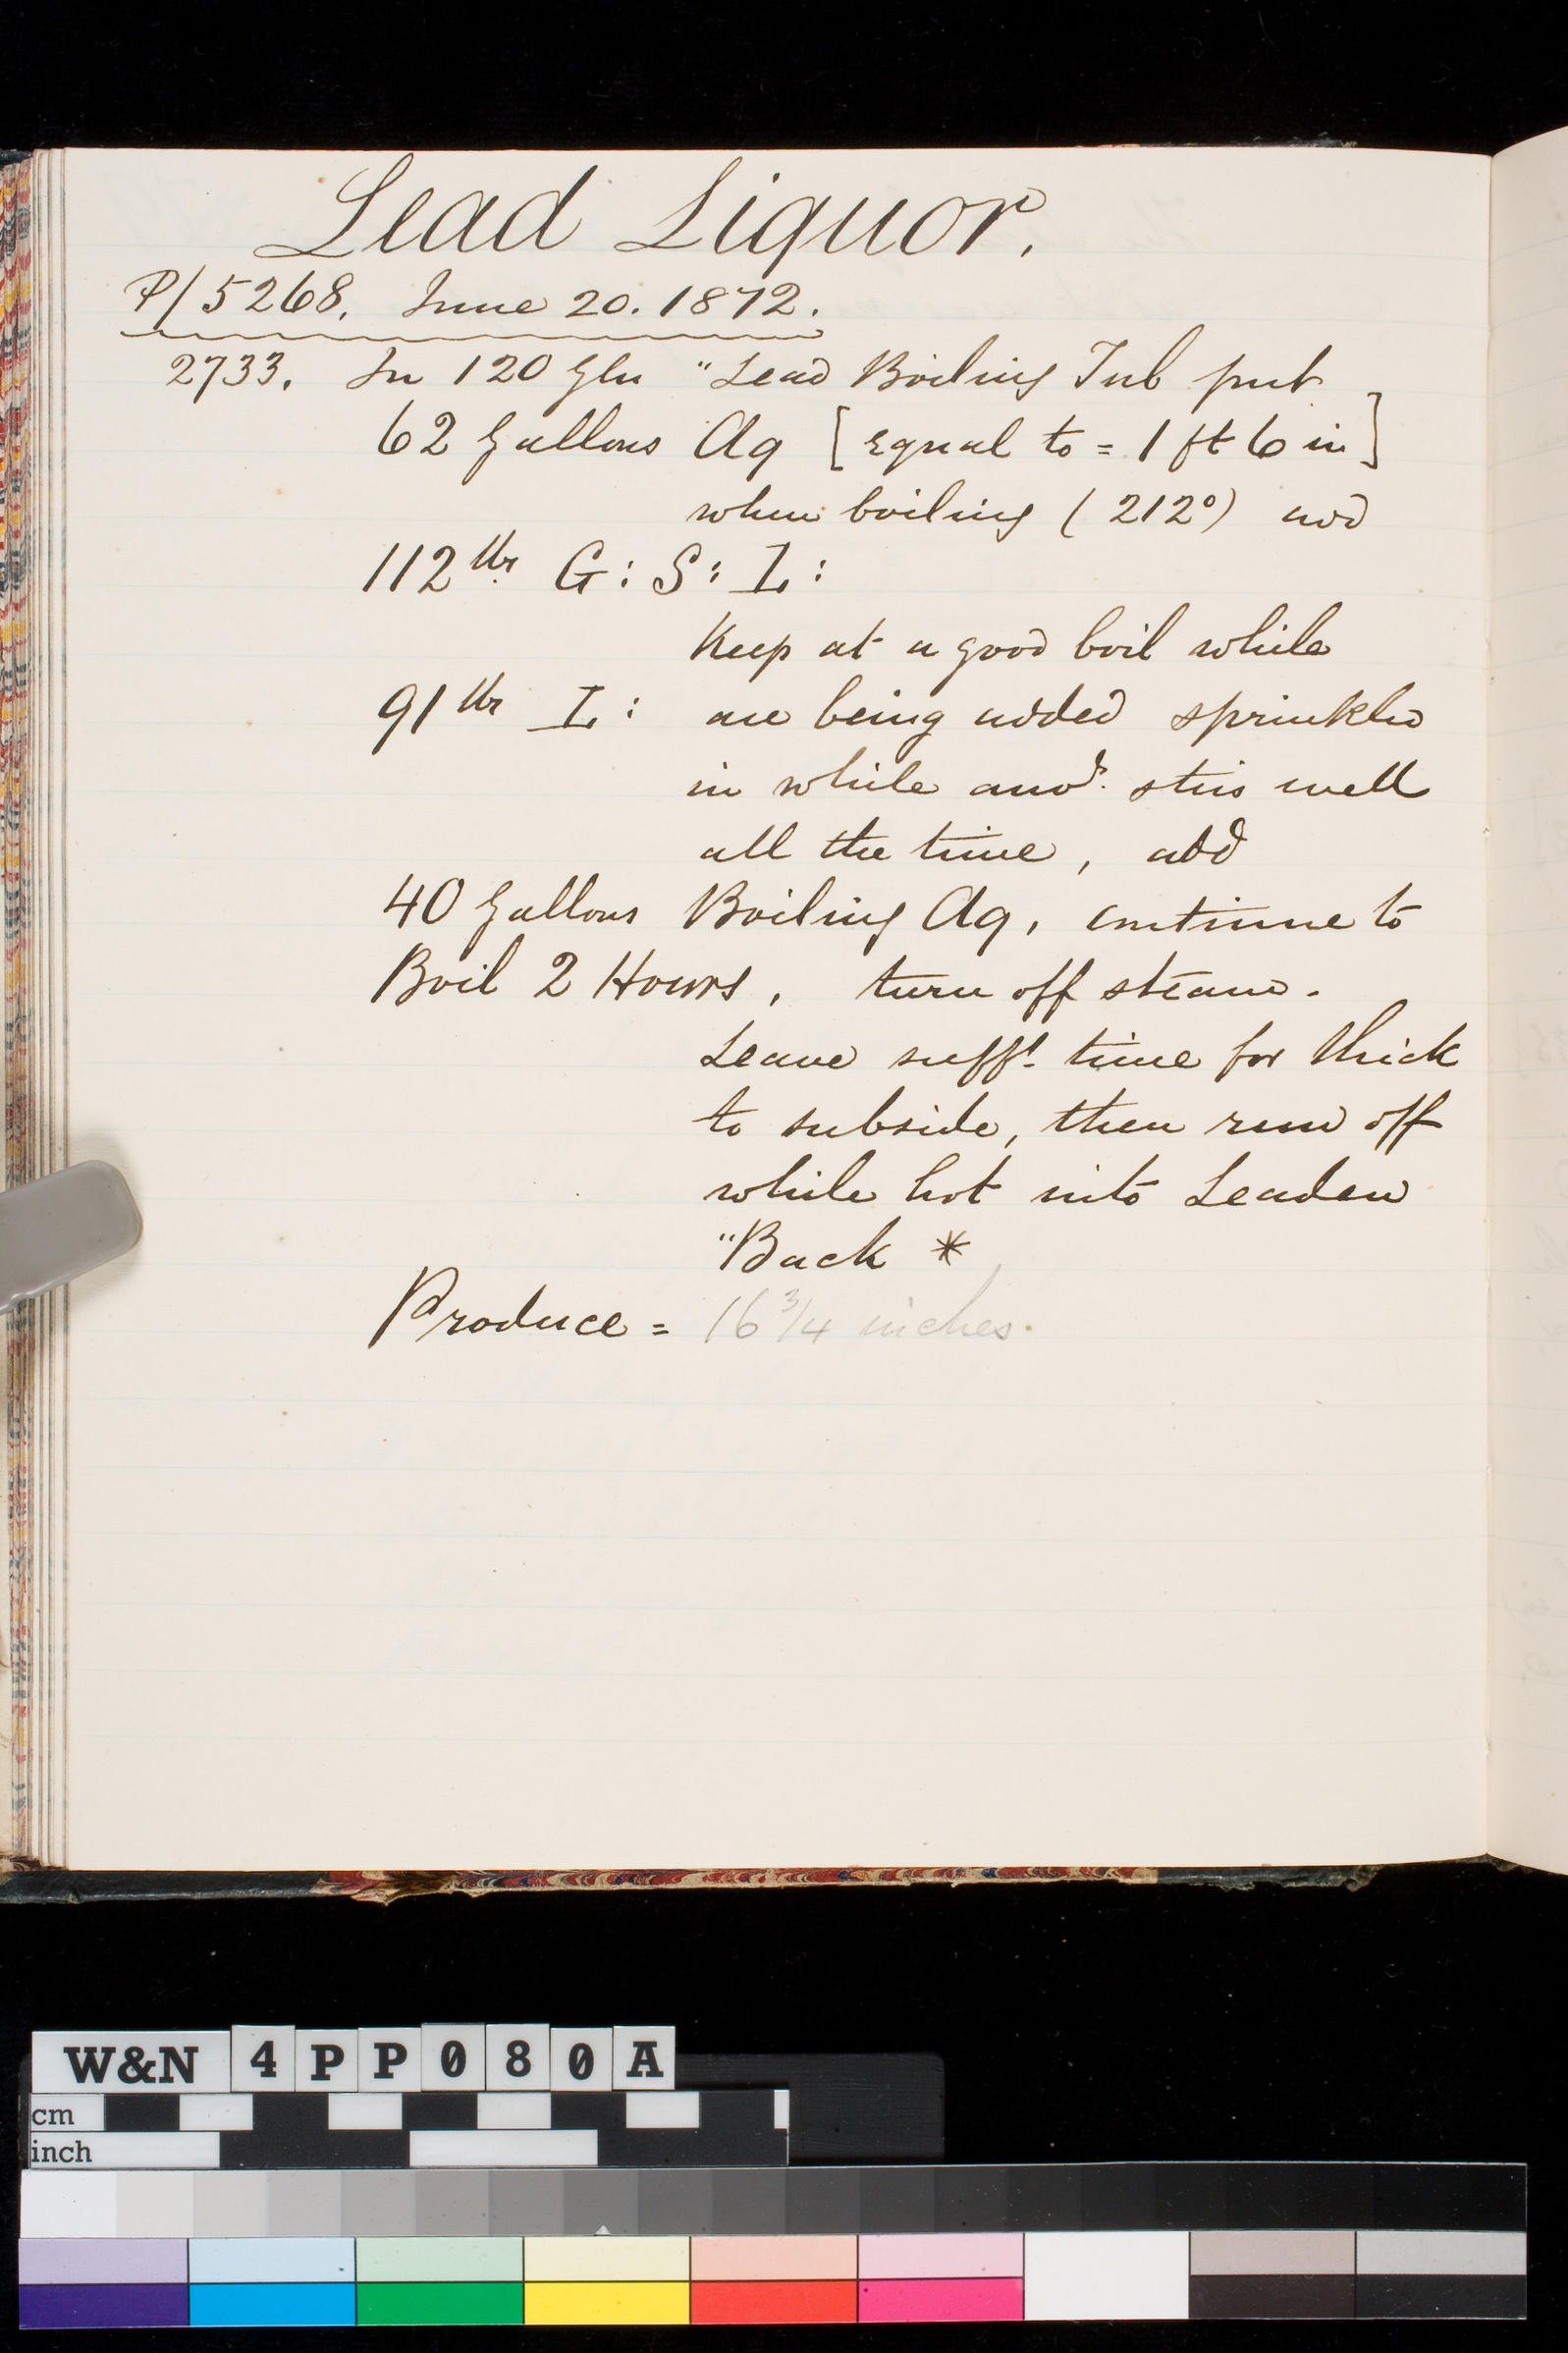 Lead Liquor.
P/5268. June 20. 1872.
2733. In 120 Gln "Lead Boiling Tub put
62 Gallons Aq [Equal to = 1 ft 6 in]
when boiling (212°) add
112 lbs G: S: L:
Keep at a good boil while
91 lbs L: are being added sprinkled
in while stir well
all the time, add
40 Gallons Boiling Aq, continue to
Boil 2 Hours, turn off steam.
Leave sufft. time for thick
to subside, then run off
while hot into Leaden
"Back *
Produce = 16 3/4 inches.
W&N 4PP080A
cm
inch